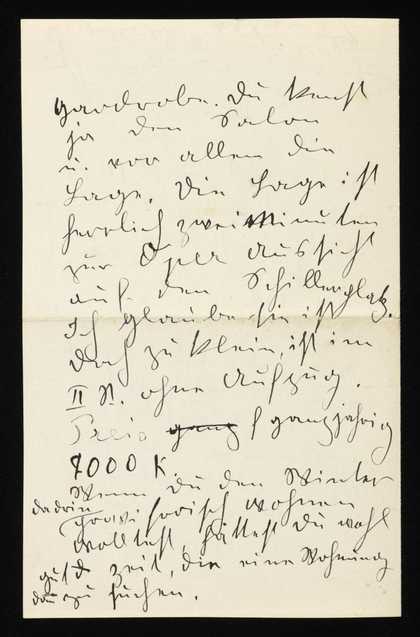 Gardrobe. Du kennst
ja den Salon
u. vor allem die
Lage. Die Lage ist
herrlich zwei Minuten
zur Oper Aussicht
auf den Schillerplatz.
Ich glaube sie ist
doch zu klein, ist im
II St. ohne Aufzug.
Preis ganz f ganzjährig
7000 K.
Wenn Du den Winter
darin
provisorisch wohnen
wolltest, hättest Du wohl
gut Zeit, dir eine Wohnung
dazu suchen.